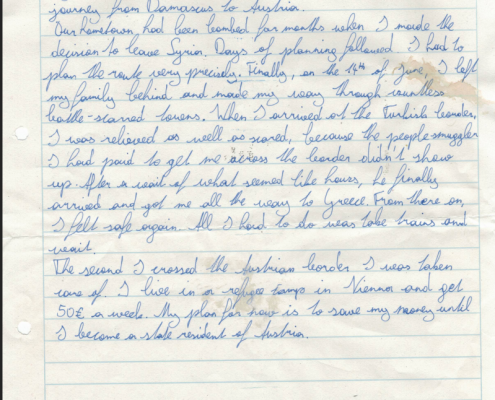 journey from Damascus to Austria.
Our hometown had been bombed for months when I made the
decision to leave Syria. Days of planning followed. I had to
plan the route very precisely. Finally, on the 14th of June, I left
my family behind and made my way through countless
battle-scarred towns. When I arrived at the Turkish boarder,
I was relieved as well as scared, because the people smuggler
I had paid to get me across the boarder didn't show
up. After a wait of what seemed like hours, he finally
arrived and got me all the way to Greece. From there on,
I felt safe again. All I had to do was take trains and
wait.
The second I crossed the Austrian border I was taken
care of. I live in a refugee camp in Vienna and get
50€ a week. My plan for now is to save my money until
I become a state resident of Austria.